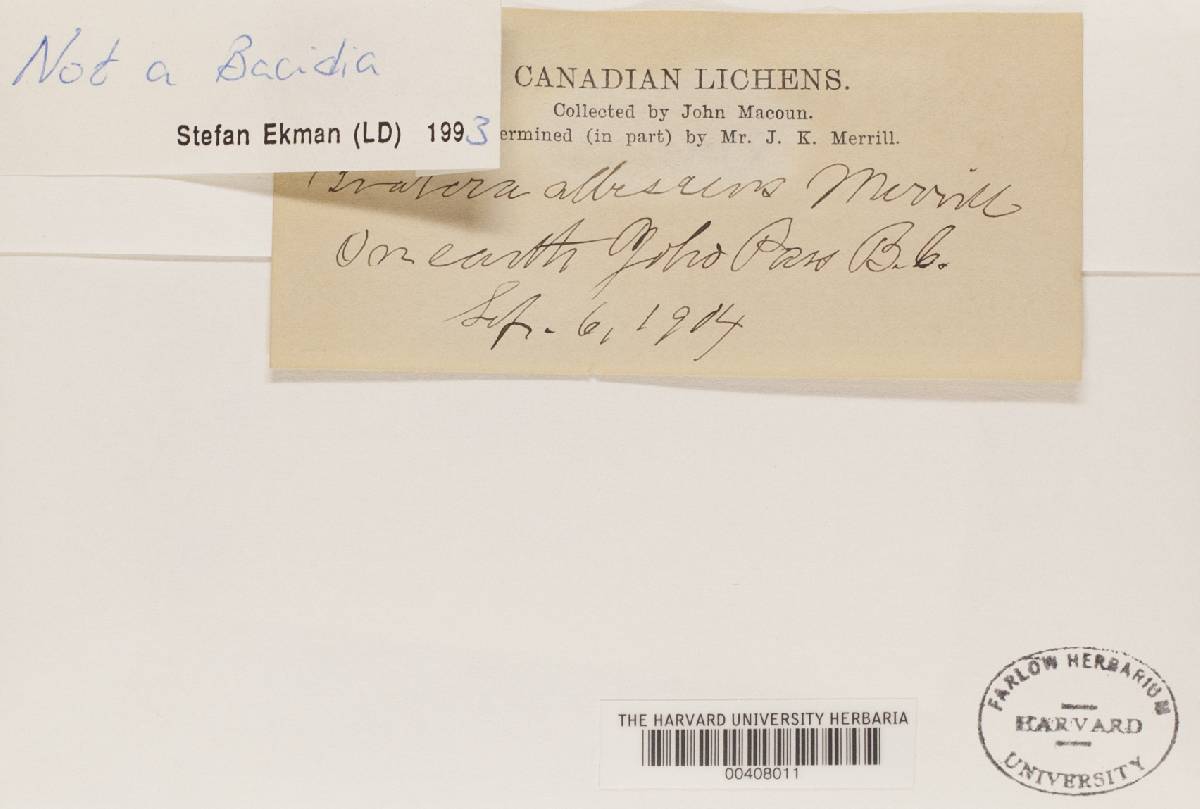 Not a Bacidia
Stefan Ekman (LD) 1993
CANADIAN LICHENS.
Collected by John Macoun.
ermined (in part) by Mr. J. K. Merrill.
Biatora albescens Merrill
On earth Yoho Pass B.C.
Sep. 6, 1904
THE HARVARD UNIVERSITY HERBARIA
00408011
FARLOW HERBARIUM
HARVARD
UNIVERSITY